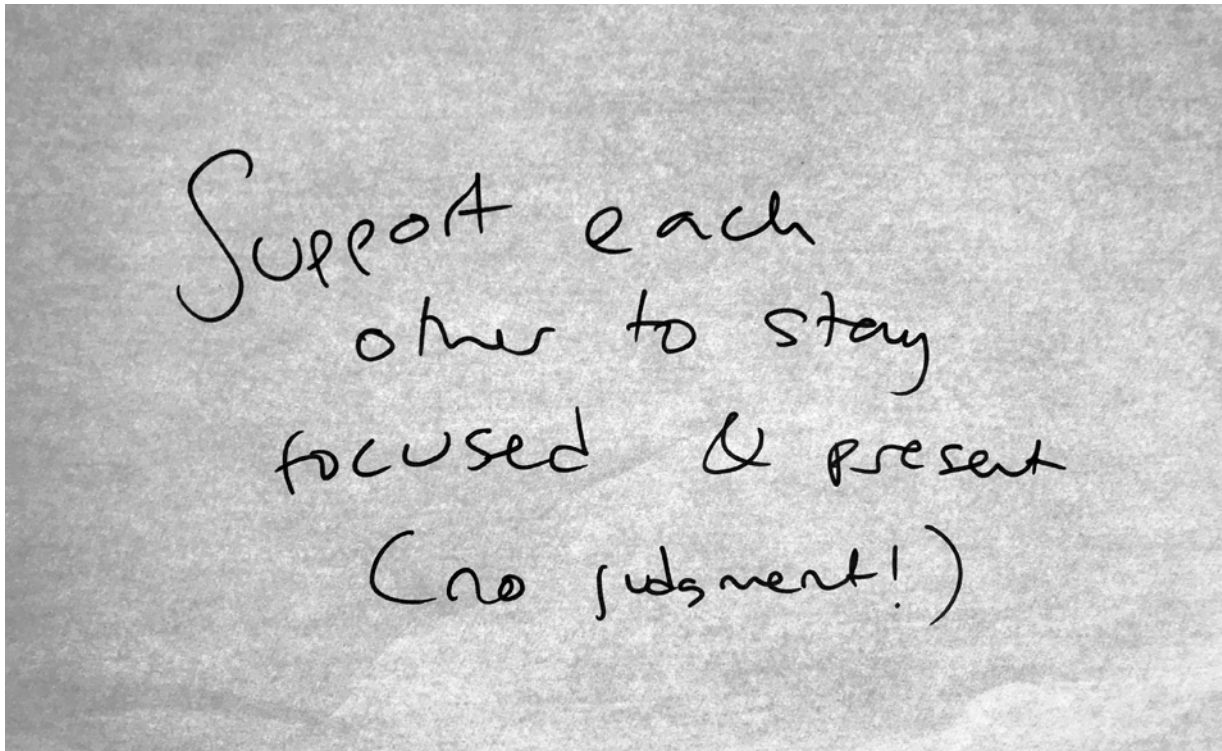 Support each
other to stay
focused & present
(no judgment!)